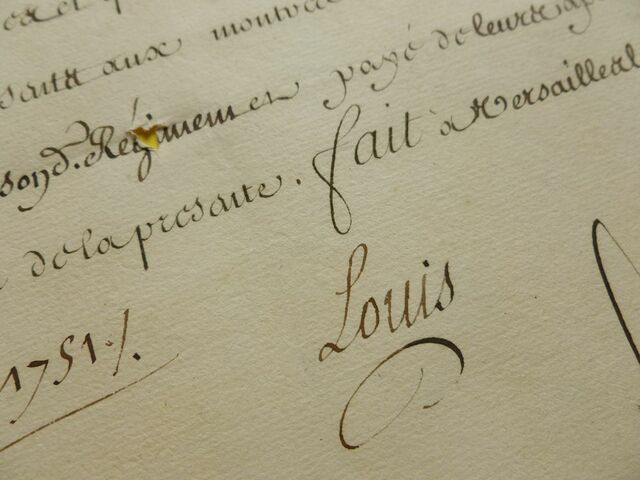 et
sante aux montres
son d. Régiment en payé de leurs ap
de la presente. fait à Versailles
1751./.
Louis